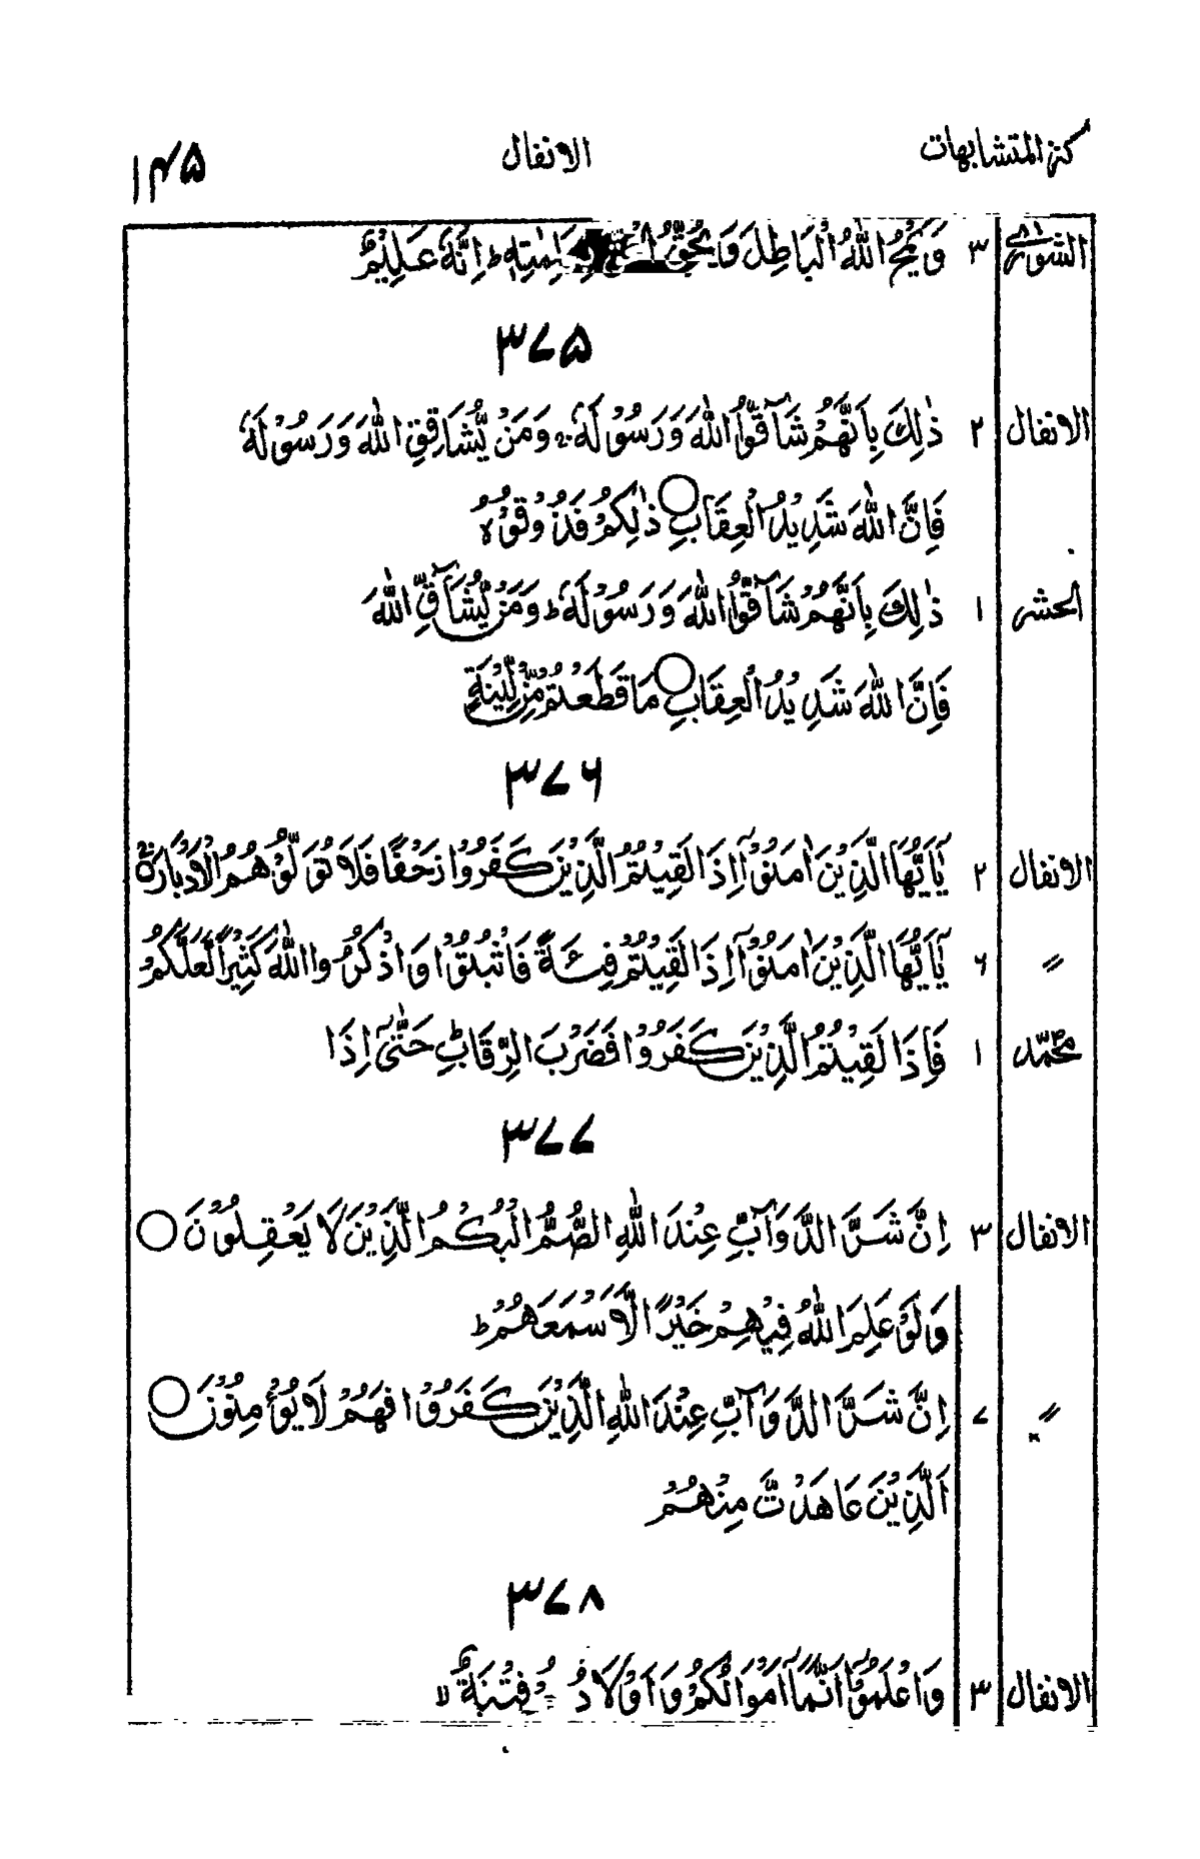 كنز المتشابهات الانفال ۱۴۵
الشورىٰ ۳ وَيَمْحُ اللّٰهُ الْبَاطِلَ وَيُحِقُّ بِكَلِمٰتِهٖ ط اِنَّهٗ عَلِيْمٌۢ
۳۷۵
الانفال ۲ ذٰلِكَ بِاَنَّهُمْ شَآقُّوا اللّٰهَ وَرَسُوْلَهٗ ج وَمَنْ يُّشَاقِقِ اللّٰهَ وَرَسُوْلَهٗ
فَاِنَّ اللّٰهَ شَدِيْدُ الْعِقَابِ ○ ذٰلِكُمْ فَذُوْقُوْهُ
الحشر ۱ ذٰلِكَ بِاَنَّهُمْ شَآقُّوا اللّٰهَ وَرَسُوْلَهٗ ط وَمَنْ يُّشَآقِّ اللّٰهَ
فَاِنَّ اللّٰهَ شَدِيْدُ الْعِقَابِ ○ مَا قَطَعْتُمْ مِّنْ لِّيْنَةٍ
۳۷۶
الانفال ۲ يٰٓاَيُّهَا الَّذِيْنَ اٰمَنُوْٓا اِذَا لَقِيْتُمُ الَّذِيْنَ كَفَرُوْا زَحْفًا فَلَا تُوَلُّوْهُمُ الْاَدْبَارَ ۚ
〃 ۶ يٰٓاَيُّهَا الَّذِيْنَ اٰمَنُوْٓا اِذَا لَقِيْتُمْ فِئَةً فَاثْبُتُوْا وَاذْكُرُوا اللّٰهَ كَثِيْرًا لَّعَلَّكُمْ
محمّد ۱ فَاِذَا لَقِيْتُمُ الَّذِيْنَ كَفَرُوْا فَضَرْبَ الرِّقَابِ ط حَتّٰىٓ اِذَا
۳۷۷
الانفال ۳ اِنَّ شَرَّ الدَّوَآبِّ عِنْدَ اللّٰهِ الصُّمُّ الْبُكْمُ الَّذِيْنَ لَا يَعْقِلُوْنَ ○
وَلَوْ عَلِمَ اللّٰهُ فِيْهِمْ خَيْرًا لَّاَسْمَعَهُمْ ط
〃 ۷ اِنَّ شَرَّ الدَّوَآبِّ عِنْدَ اللّٰهِ الَّذِيْنَ كَفَرُوْا فَهُمْ لَا يُؤْمِنُوْنَ ○
اَلَّذِيْنَ عَاهَدْتَّ مِنْهُمْ
۳۷۸
الانفال ۳ وَاعْلَمُوْٓا اَنَّمَآ اَمْوَالُكُمْ وَاَوْلَادُكُمْ فِتْنَةٌ لا